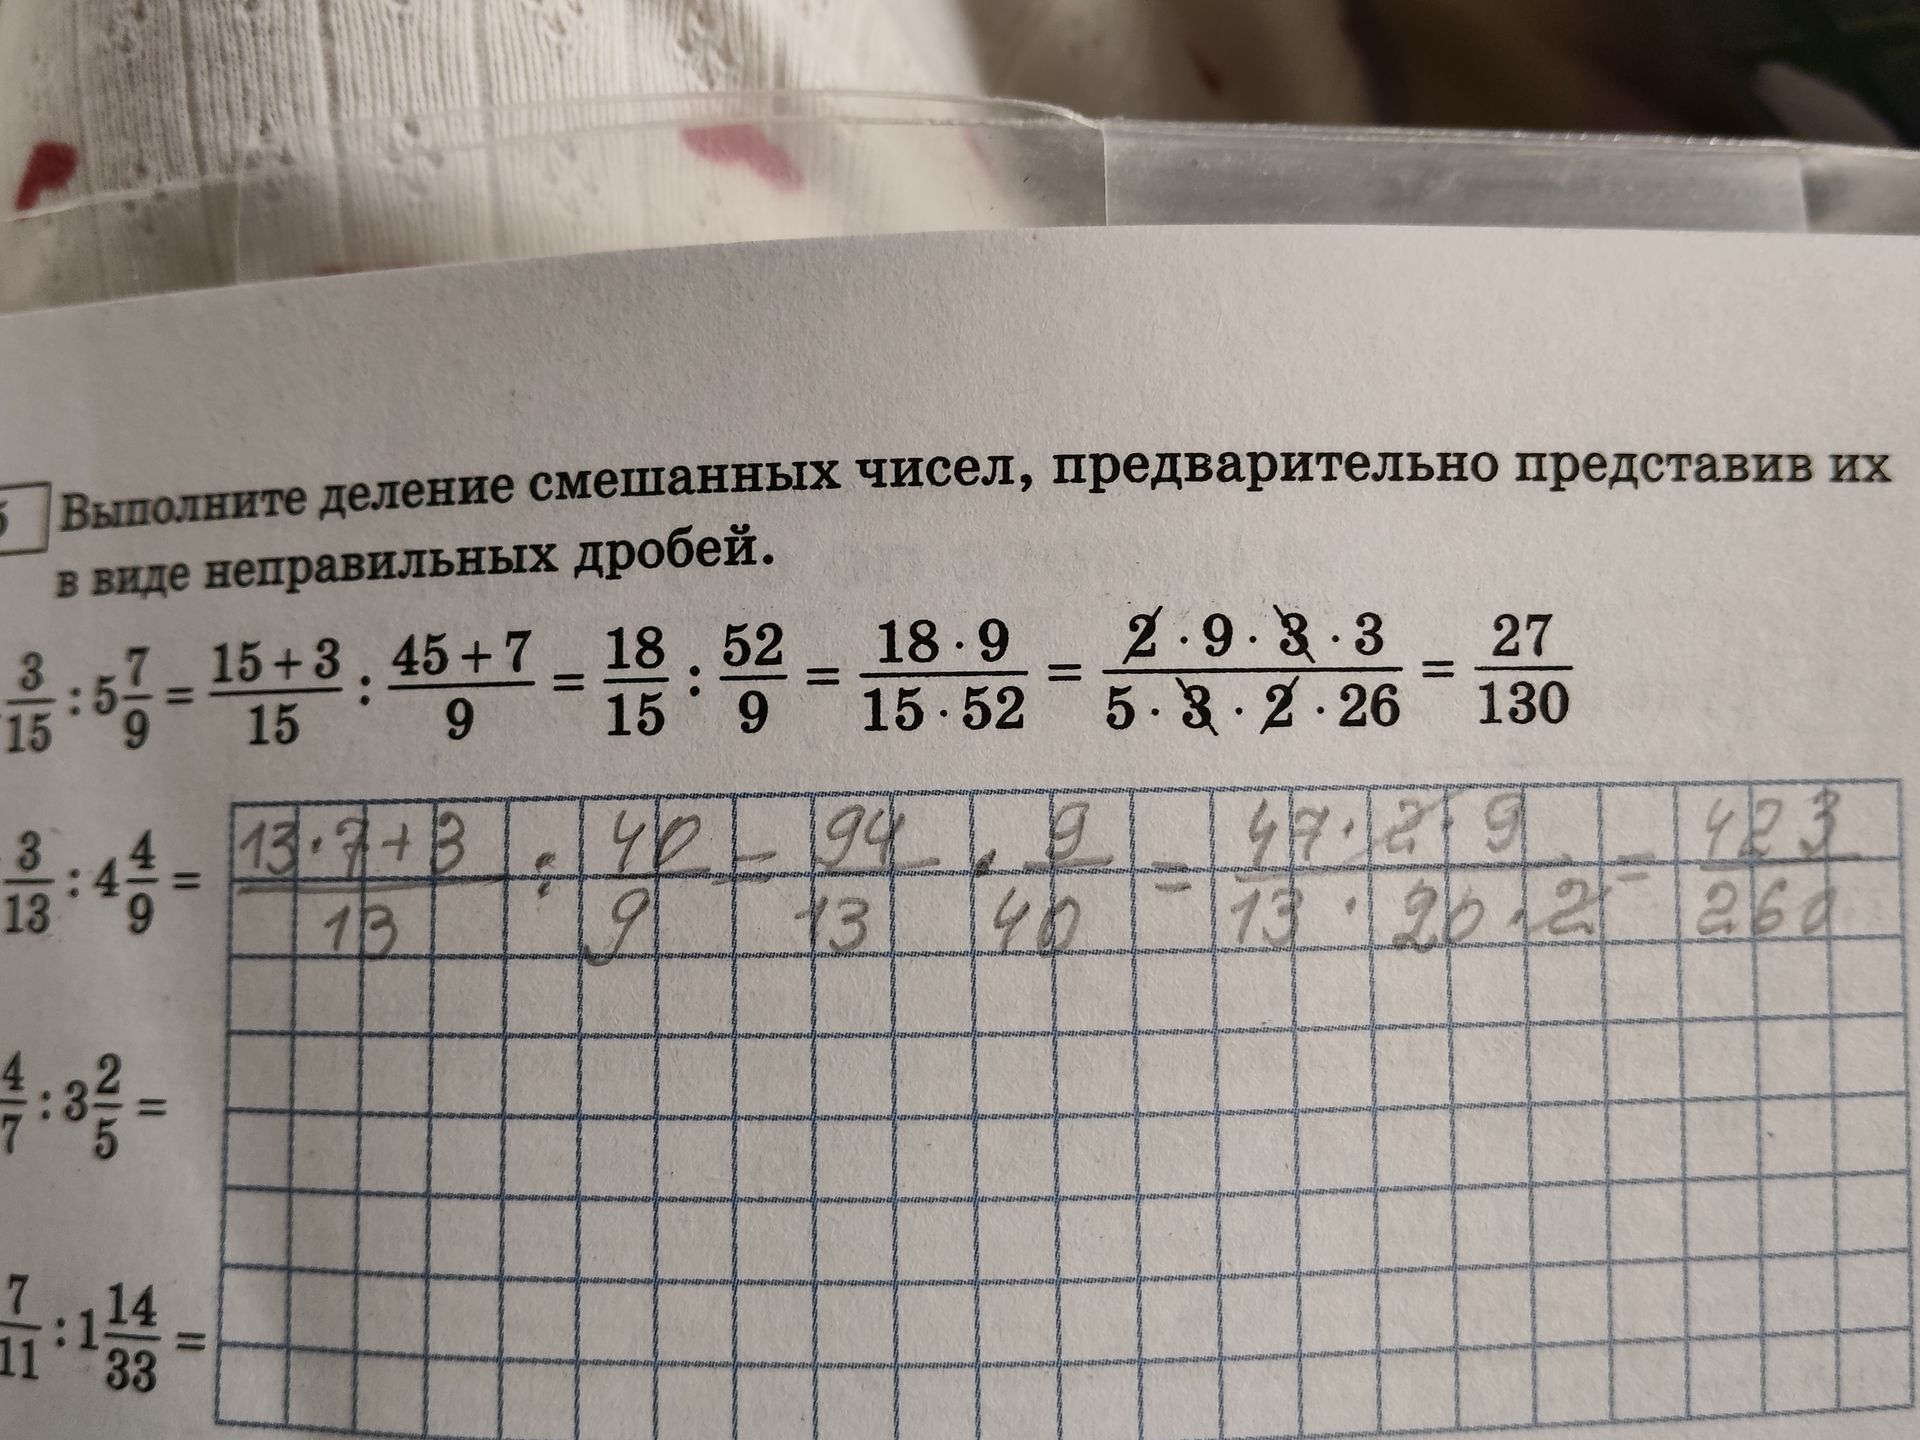 Выполните деление смешанных чисел, предварительно представив их
в виде неправильных дробей.
3/15 : 5 7/9 = (15 + 3)/15 : (45 + 7)/9 = 18/15 : 52/9 = (18 · 9)/(15 · 52) = (2 · 9 · 3 · 3)/(5 · 3 · 2 · 26) = 27/130
3/13 : 4 4/9 = (13 · 7 + 3)/13 : 40/9 = 94/13 · 9/40 = (47 · 2 · 9)/(13 · 20 · 2) = 423/260
4/7 : 3 2/5 =
7/11 : 1 14/33 =